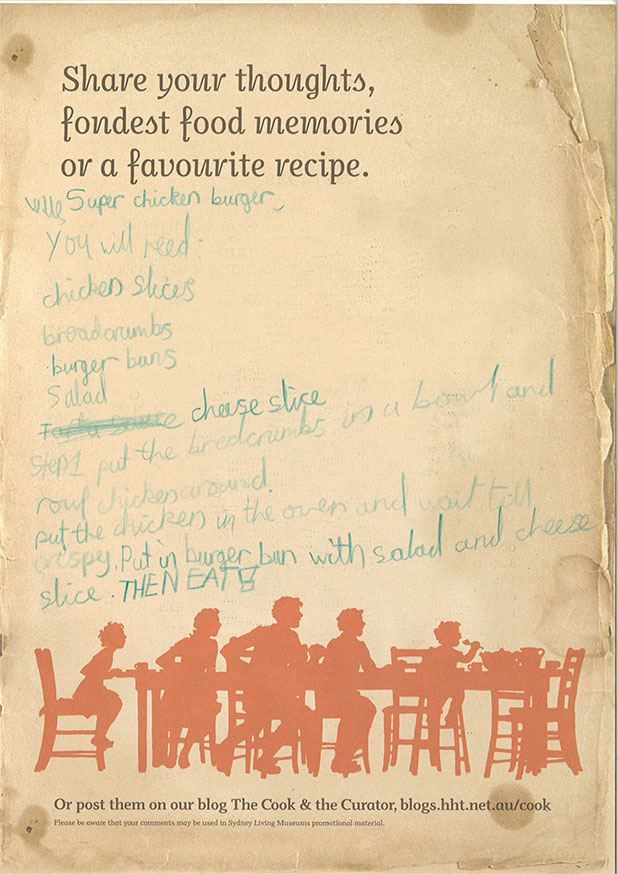 Share your thoughts,
fondest food memories
or a favourite recipe.
Super chicken burger
You will need:
chicken slices
breadcrumbs
burger buns
Salad
cheese slice
Step 1 put the bredcrumbs in a bowl and
rowl chicken around.
put the chicken in the oven and wait till
crispy. Put in burger bun with salad and cheese
slice. THEN EAT!!
Or post them on our blog The Cook & the Curator, blogs.hht.net.au/cook
Please be aware that your comments may be used in Sydney Living Museums promotional material.